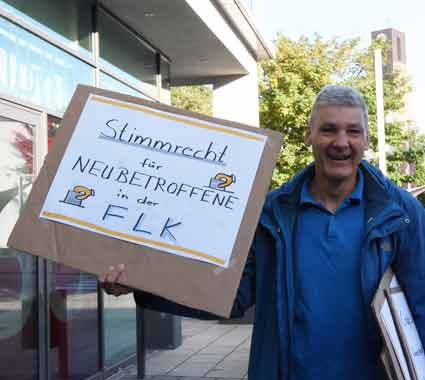 Stimmrecht
für
NEUBETROFFENE
in der
FLK